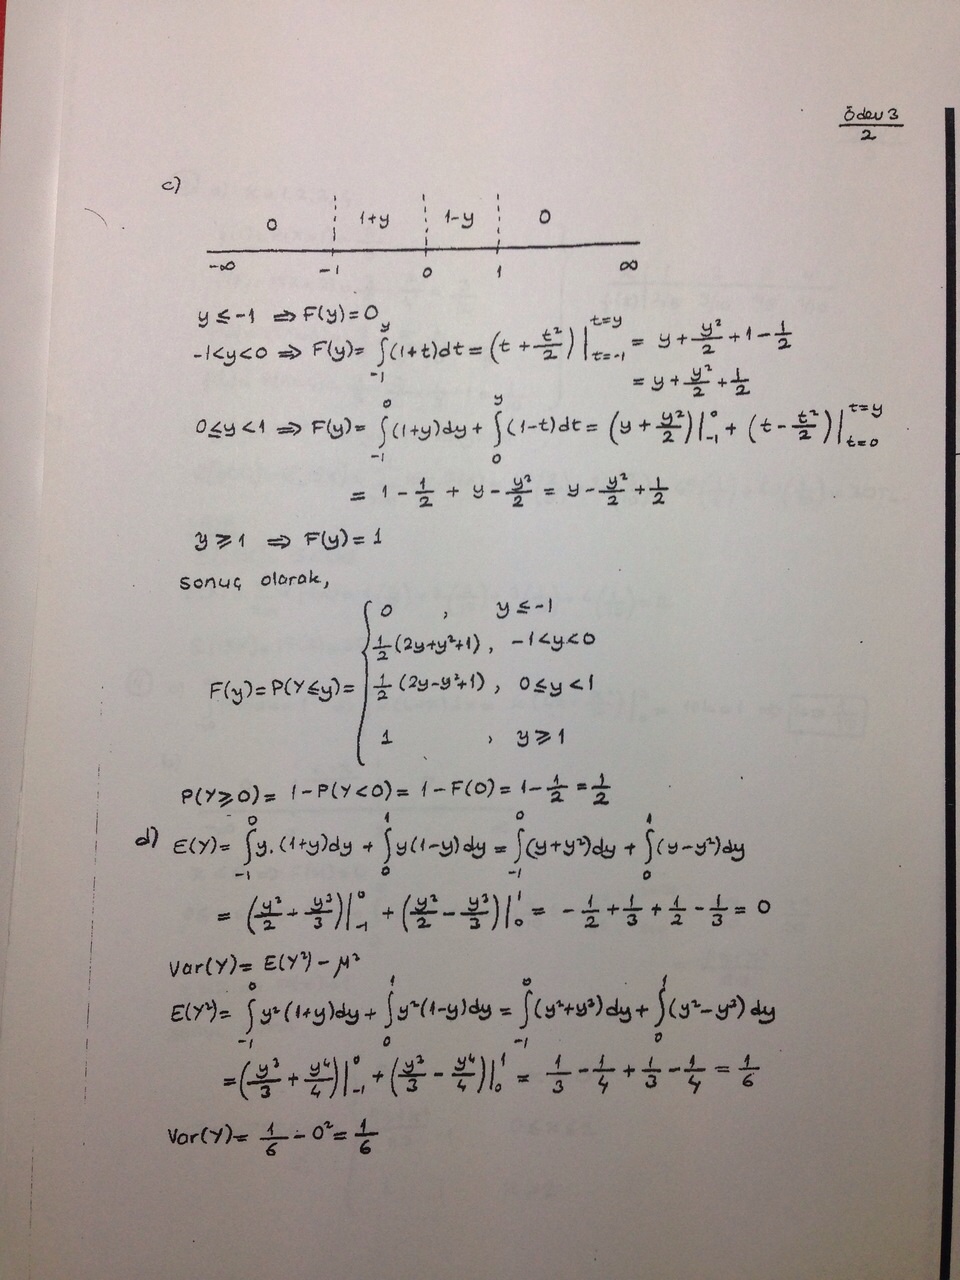 Ödev 3
2
c)
0 1+y 1-y 0
-∞ -1 0 1 ∞
y ≤ -1 ⇒ F(y) = 0
-1<y<0 ⇒ F(y) = ∫_{-1}^{y} (1+t)dt = (t + t²/2) |_{t=-1}^{t=y} = y + y²/2 + 1 - 1/2
= y + y²/2 + 1/2
0≤y<1 ⇒ F(y) = ∫_{-1}^{0} (1+y)dy + ∫_{0}^{y} (1-t)dt = (y + y²/2)|_{-1}^{0} + (t - t²/2)|_{t=0}^{t=y}
= 1 - 1/2 + y - y²/2 = y - y²/2 + 1/2
y ≥ 1 ⇒ F(y) = 1
sonuç olarak,
0 , y ≤ -1
1/2 (2y+y²+1) , -1<y<0
F(y) = P(Y≤y) = { 1/2 (2y-y²+1) , 0≤y<1
1 , y ≥ 1
P(Y≥0) = 1-P(Y<0) = 1-F(0) = 1 - 1/2 = 1/2
d) E(Y) = ∫_{-1}^{0} y.(1+y)dy + ∫_{0}^{1} y(1-y)dy = ∫_{-1}^{0} (y+y²)dy + ∫_{0}^{1} (y-y²)dy
= (y²/2 + y³/3)|_{-1}^{0} + (y²/2 - y³/3)|_{0}^{1} = -1/2 + 1/3 + 1/2 - 1/3 = 0
Var(Y) = E(Y²) - μ²
E(Y²) = ∫_{-1}^{0} y²(1+y)dy + ∫_{0}^{1} y²(1-y)dy = ∫_{-1}^{0} (y²+y³)dy + ∫_{0}^{1} (y²-y³)dy
= (y³/3 + y⁴/4)|_{-1}^{0} + (y³/3 - y⁴/4)|_{0}^{1} = 1/3 - 1/4 + 1/3 - 1/4 = 1/6
Var(Y) = 1/6 - 0² = 1/6